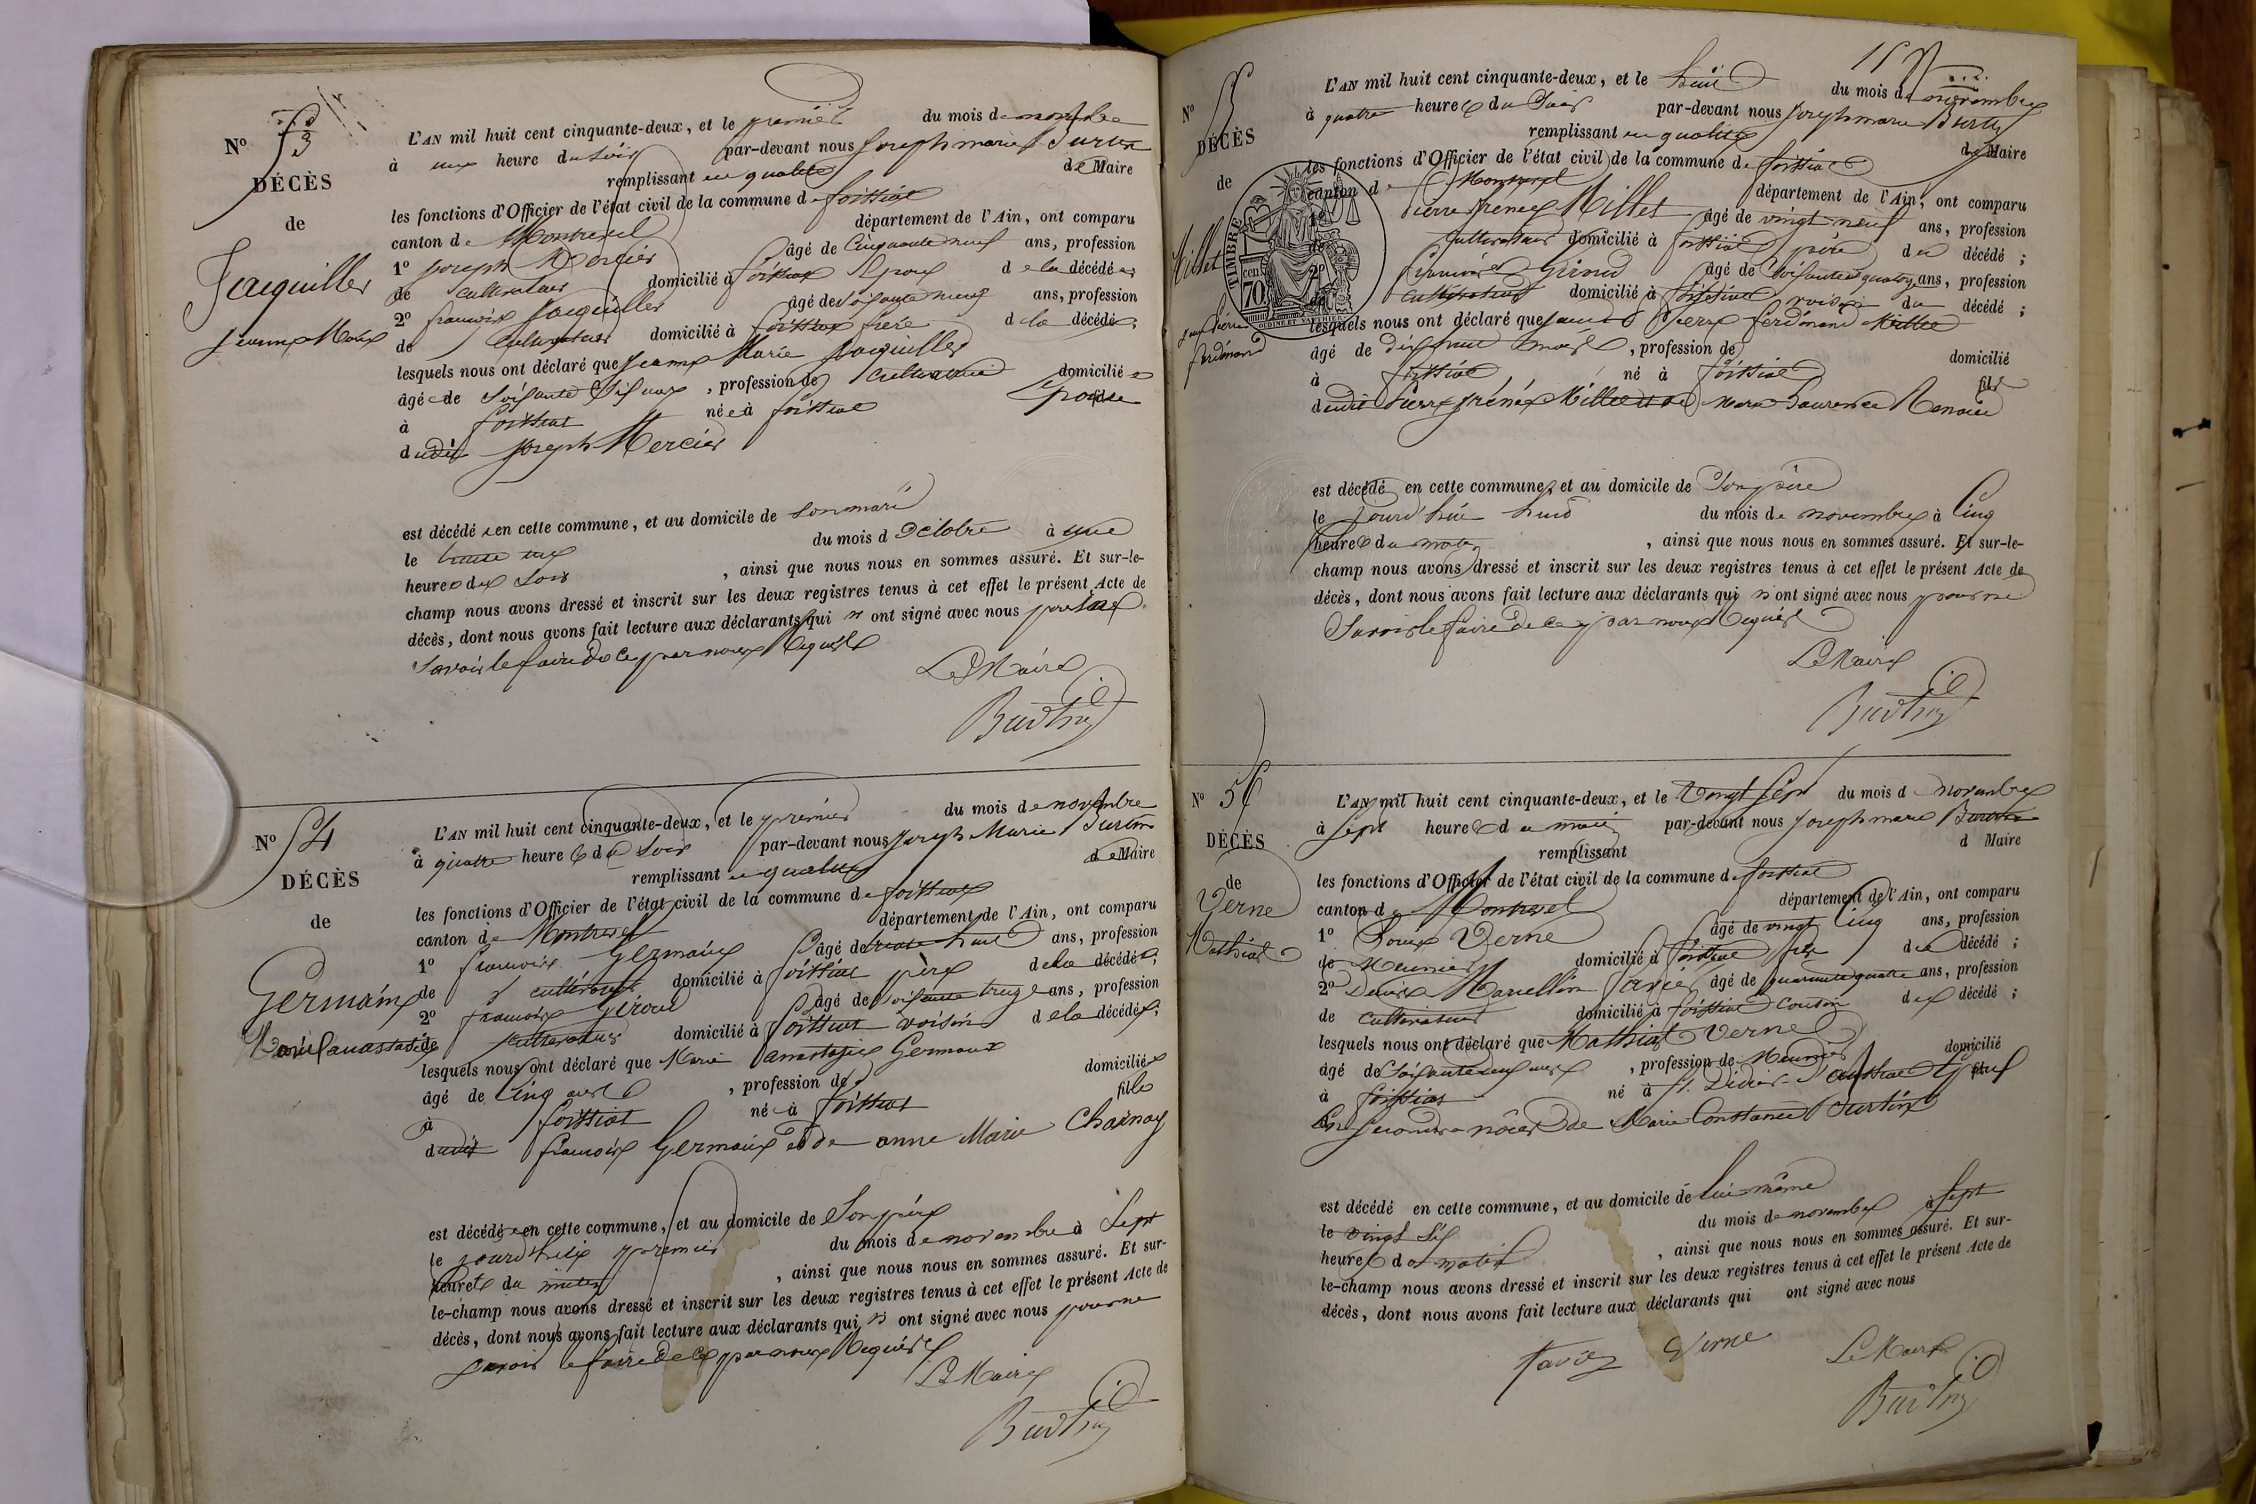 N° 53
DÉCÈS
de
Jacquiller
Jeanne Marie
L'AN mil huit cent cinquante-deux, et le premier du mois de novembre
à une heure du Soir par-devant nous Joseph marie Burtin
remplissant en qualité de Maire
les fonctions d'Officier de l'état civil de la commune de foissiat
canton de Montrevel département de l'Ain, ont comparu
1° Joseph Mercier âgé de Cinquante neuf ans, profession
de cultivateur domicilié à foissiat Epoux de la décédée,
2° francois Jacquiller âgé de soisante neuf ans, profession
de cultivateur domicilié à foissiat frère de la décédé;
lesquels nous ont déclaré que Jeanne Marie Jacquiller
âgé de soisante six ans, profession de cultivatrice domicilié
à foissiat née à foissiat Epouse
dudit Joseph Mercier
est décédé en cette commune, et au domicile de son mari
le trente un du mois d'octobre à une
heure du Soir, ainsi que nous nous en sommes assuré. Et sur-le-
champ nous avons dressé et inscrit sur les deux registres tenus à cet effet le présent Acte de
décès, dont nous avons fait lecture aux déclarants qui n'ont signé avec nous pour ne
savoir le faire de ce par nous Requis
Le Maire
Burtin
N° 54
DÉCÈS
de
Germain
Marie anastasie
L'AN mil huit cent cinquante-deux, et le premier du mois de novembre
à quatre heure du Soir par-devant nous Joseph Marie Burtin
remplissant en qualité de Maire
les fonctions d'Officier de l'état civil de la commune de foissiat
canton de Montrevel département de l'Ain, ont comparu
1° francois Germain âgé de trente huit ans, profession
de cultivateur domicilié à foissiat père de la décédé;
2° francois Giroud âgé de soisante treize ans, profession
de cultivateur domicilié à foissiat voisin de la décédé;
lesquels nous ont déclaré que Marie anastasie Germain
âgé de Cinq ans, profession de domicilié
à foissiat né à foissiat fille
dudit francois Germain et de anne Marie Charnay
est décédé en cette commune, et au domicile de Son père
le jourdhui premier du mois de novembre à Sept
heure du matin, ainsi que nous nous en sommes assuré. Et sur-
le-champ nous avons dressé et inscrit sur les deux registres tenus à cet effet le présent Acte de
décès, dont nous avons fait lecture aux déclarants qui n'ont signé avec nous pour ne
savoir le faire de ce par nous Requis
Le Maire
Burtin
N° 55
DÉCÈS
de
Millet
Jean Pierre
ferdinand
TIMBRE
cen 70
L'AN mil huit cent cinquante-deux, et le huit du mois de novembre
à quatre heure du Soir par-devant nous Joseph marie Burtin
remplissant en qualité de Maire
les fonctions d'Officier de l'état civil de la commune de foissiat
canton de Montrevel département de l'Ain, ont comparu
1° Pierre frené Millet âgé de vingt neuf ans, profession
de cultivateur domicilié à foissiat père du décédé;
2° Giroud âgé de soisante quatorze ans, profession
de cultivateur domicilié à foissiat voisin du décédé;
lesquels nous ont déclaré que Jean Pierre ferdinand Millet
âgé de dix huit mois, profession de domicilié
à foissiat né à foissiat fils
dudit Pierre frené Millet et de Marie Laurence Renoud
est décédé en cette commune, et au domicile de Son père
le jourd'hui huit du mois de novembre à Cinq
heure du matin, ainsi que nous nous en sommes assuré. Et sur-le-
champ nous avons dressé et inscrit sur les deux registres tenus à cet effet le présent Acte de
décès, dont nous avons fait lecture aux déclarants qui n'ont signé avec nous pour ne
Savoir le faire de ce par nous Requis
Le Maire
Burtin
N° 56
DÉCÈS
de
Verne
Mathias
L'AN mil huit cent cinquante-deux, et le Vingt sept du mois de novembre
à Sept heure du matin par-devant nous Joseph marie Burtin
remplissant d Maire
les fonctions d'Officier de l'état civil de la commune de foissiat
canton de Montrevel département de l'Ain, ont comparu
1° Louis Verne âgé de vingt Cinq ans, profession
de Meunier domicilié à foissiat fils du décédé;
2° Denis Marcellin favier âgé de quarante quatre ans, profession
de cultivateur domicilié à foissiat cousin du décédé;
lesquels nous ont déclaré que Mathias Verne
âgé de soisante un ans, profession de Meunier domicilié
à foissiat né à St. Didier d'aussiat Epoux
En secondes nôces de Marie Constance Burtin
est décédé en cette commune, et au domicile de lui même
le vingt six du mois de novembre à Sept
heure du matin, ainsi que nous nous en sommes assuré. Et sur-
le-champ nous avons dressé et inscrit sur les deux registres tenus à cet effet le présent Acte de
décès, dont nous avons fait lecture aux déclarants qui ont signé avec nous
favier Verne Le Maire
Burtin